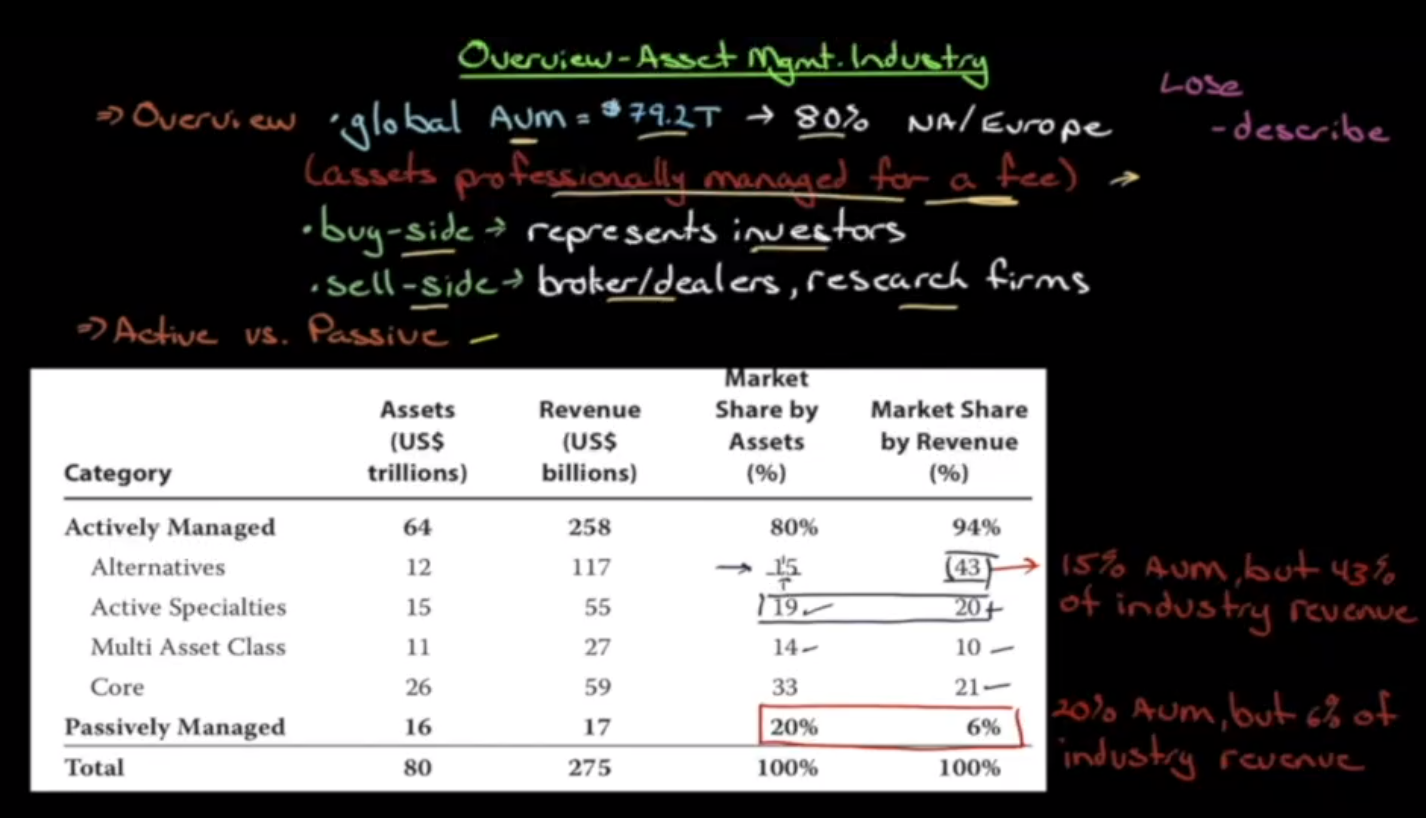 Overview - Asset Mgmt. Industry
LOSE
- describe
⇒ Overview · global AUM = $79.2T → 80% NA/Europe
(assets professionally managed for a fee) →
· buy-side → represents investors
· sell-side → broker/dealers, research firms
⇒ Active vs. Passive –
Category Assets (US$ trillions) Revenue (US$ billions) Market Share by Assets (%) Market Share by Revenue (%)
Actively Managed 64 258 80% 94%
Alternatives 12 117 → 15 (43) → 15% AUM, but 43% of industry revenue
Active Specialties 15 55 19 20
Multi Asset Class 11 27 14 10
Core 26 59 33 21
Passively Managed 16 17 20% 6% 20% AUM, but 6% of industry revenue
Total 80 275 100% 100%